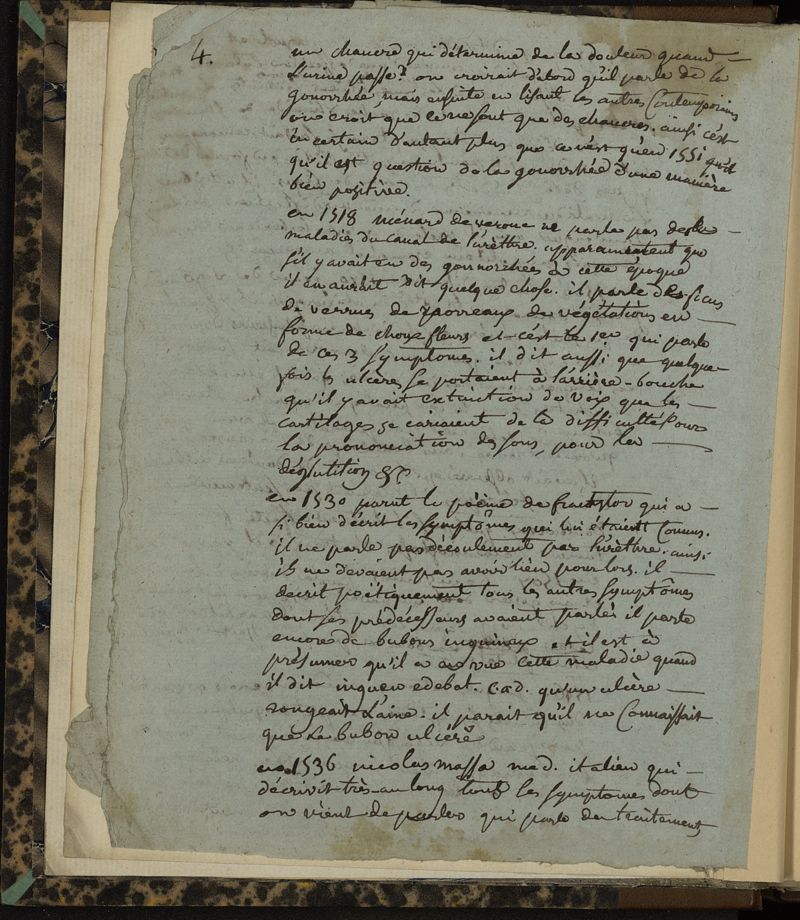 4.
un chancre qui détermine de la douleur quand
L'urine passe? on croirait d'abord qu'il parle de la
gonorrhée mais ensuite en lisant les autres Contemporains
on croit que ce ne sont que des chancres. ainsi c'est
incertain d'autant plus que ce n'est qu'en 1551 qu'il
qu'il est question de la gonorrhée d'une manière
bien positive.
en 1518 ménard de verone ne parle pas de la
maladies du canal de l'urèthre. apparamment que
s'il y avait eu des gonnorrhées à cette époque
il en aurait dit quelque chose. il parle des ficus
de verrues de porreaux de végétations en
forme de choux fleurs et c'est le 1er qui parle
de ces 3 symptomes. il dit aussi que quelque
fois les ulcères se portaient à l'arrière-bouche
qu'il y avait extinction de voix que les
cartilages se cariaient de la difficulté pour
la prononciation des sons, pour la
déglutition &c
en 1530 parut le poëme de fracastor qui a
si bien décrit les symptômes qui lui étaient Connus.
il ne parle pas d'écoulement par l'urèthre. ainsi
ils ne devaient pas avoir lieu pour lors. il
decrit poétiquement tous les autres symptômes
dont ses prédécesseurs avaient parlés il parle
encore de bubons inguinaux et il est à
présumer qu'il a vue cette maladie quand
il dit inguen edebat. c.a.d. qu'un ulcère
rongeait L'aine. il parait qu'il ne Connaissait
que le bubon ulcéré
en 1536 nicolas massa med. italien qui
décrivit très-au long tous les symptomes dont
on vient de parler qui parle des traitements